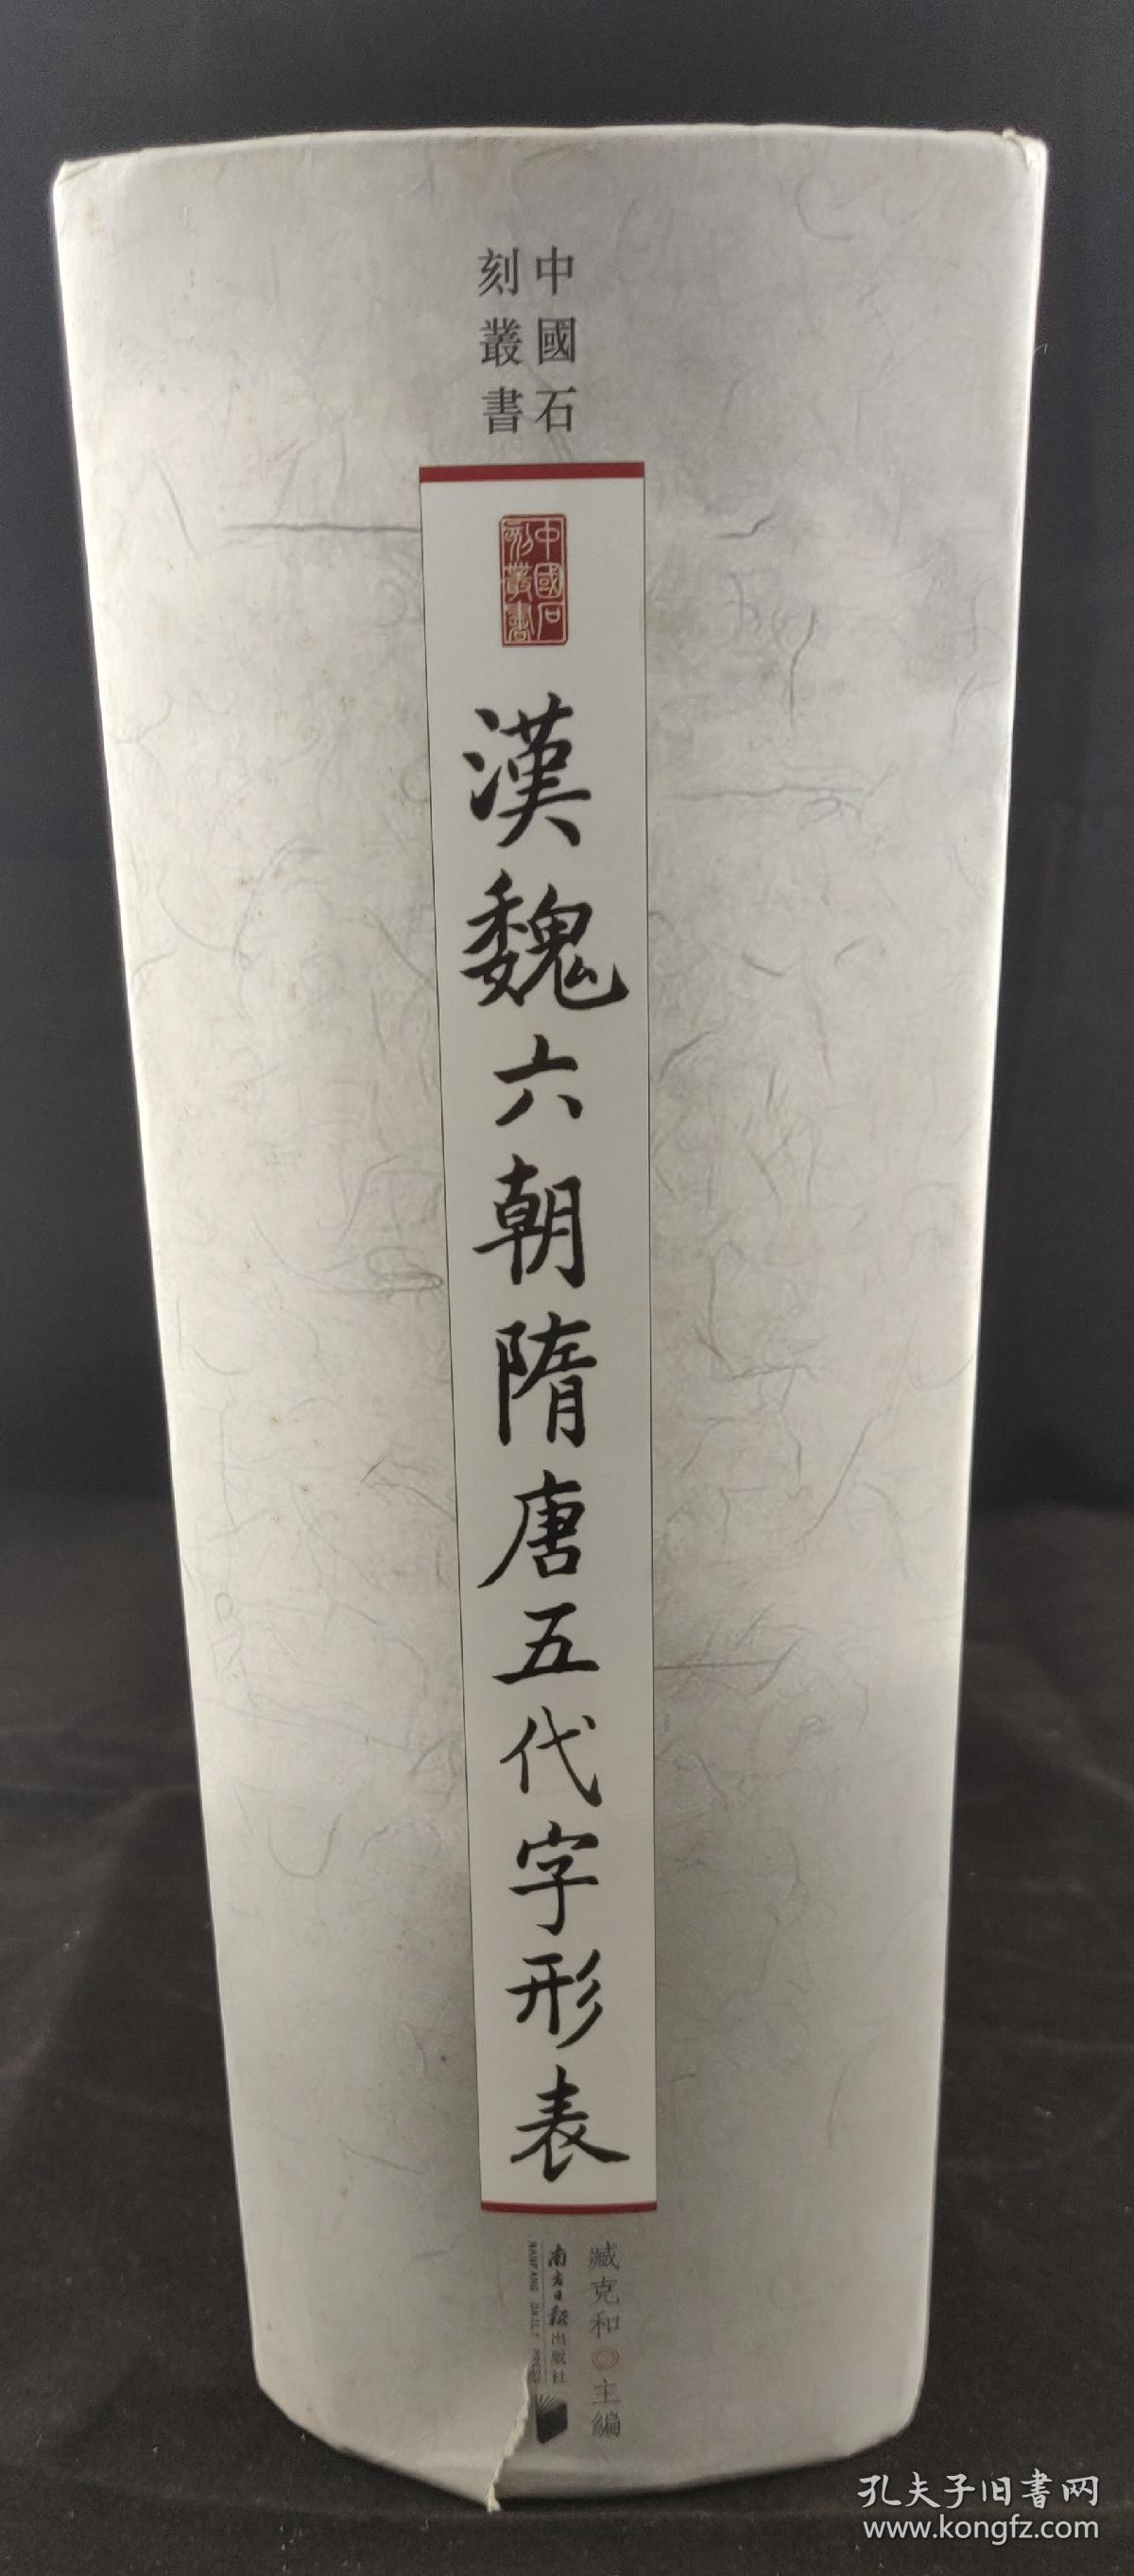 中國石
刻叢書
中國石
刻叢書
漢魏六朝隋唐五代字形表
臧克和◎主編
南方日報出版社
NANFANG DAILY PRESS
孔夫子旧書网
www.kongfz.com